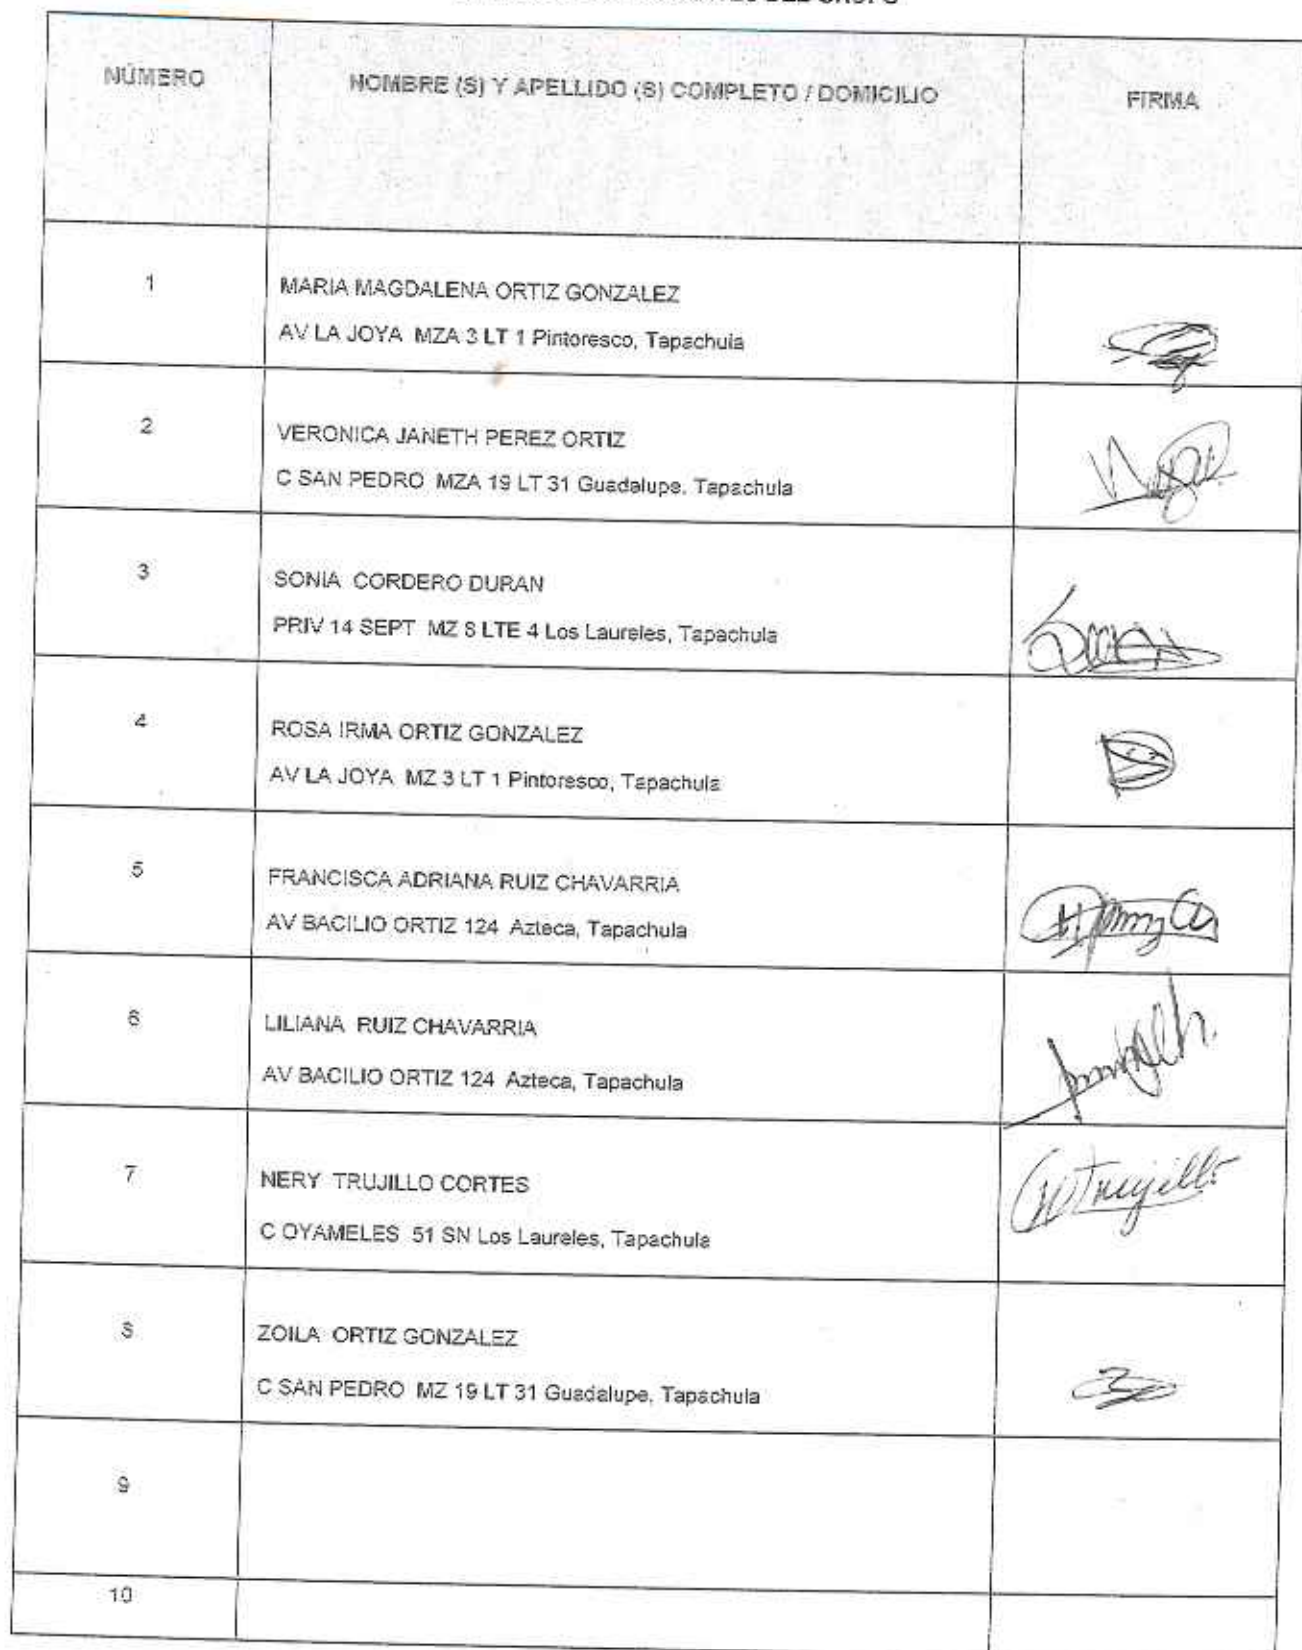 DEL GRUPO
NÚMERO
NOMBRE (S) Y APELLIDO (S) COMPLETO / DOMICILIO
FIRMA
1
MARIA MAGDALENA ORTIZ GONZALEZ
AV LA JOYA MZA 3 LT 1 Pintoresco, Tapachula
2
VERONICA JANETH PEREZ ORTIZ
C SAN PEDRO MZA 19 LT 31 Guadalupe, Tapachula
3
SONIA CORDERO DURAN
PRIV 14 SEPT MZ 8 LTE 4 Los Laureles, Tapachula
4
ROSA IRMA ORTIZ GONZALEZ
AV LA JOYA MZ 3 LT 1 Pintoresco, Tapachula
5
FRANCISCA ADRIANA RUIZ CHAVARRIA
AV BACILIO ORTIZ 124 Azteca, Tapachula
6
LILIANA RUIZ CHAVARRIA
AV BACILIO ORTIZ 124 Azteca, Tapachula
7
NERY TRUJILLO CORTES
Trujillo
C OYAMELES 51 SN Los Laureles, Tapachula
8
ZOILA ORTIZ GONZALEZ
C SAN PEDRO MZ 19 LT 31 Guadalupe, Tapachula
9
10